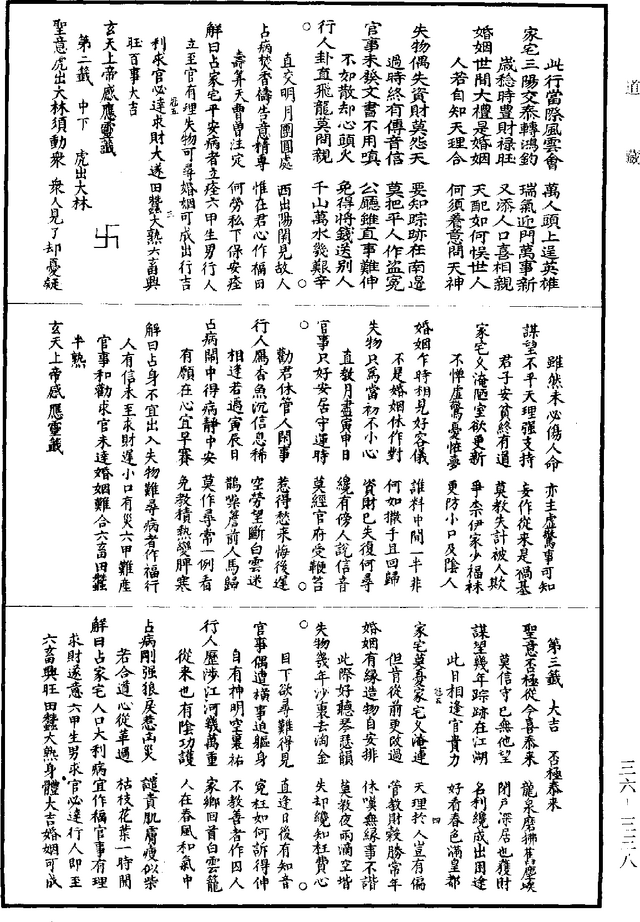 道藏
此行當際風雲會　萬人頭上逞英雄
家宅三陽交泰轉鴻鈞　瑞氣迎門萬事新
歲稔時豐財祿旺　又添人口喜相親
婚姻世間大禮是婚姻　天配如何悮世人
人若自知天理合　何須着意問天神
失物偶失資財莫怨天　要知踪跡在南邊
過時終有傳音信　莫把平人作盜冤
官事未發文書不用嗔　公廳雖直事難伸
不如散却心頭火　免得將錢送別人
行人卦直飛龍莫問親　千山萬水幾艱辛
直交明月團圓處　西出陽關見故人
占病焚香禱告意精專　惟在君心作福田
壽算天曹曾注定　何勞私下保安痊
解曰占家宅平安病者立痊六甲生男行人
立至官有理失物可尋婚姻可成出行吉
利求官必達求財大遂田蠶大熟六畜興
旺百事大吉
玄天上帝感應靈籤
第二籤　中下　虎出大林
卐
聖意虎出大林須動衆　衆人見了却憂疑
雖然未必傷人命　亦主虛驚事可知
謀望不平天理强支持　妄作從來是禍基
君子安貧終有道　莫教失計被人欺
家宅久淹陋室欲更新　爭柰伊家少福
不憚虛驚憂怪夢　更防小口及陰人
婚姻乍時相見好容儀　誰料中間一半非
不是婚姻休作對　何如撒手且回歸
失物只爲當初不小心　資財已失復何尋
直教月盡寅申日　纔有傍人說信音
官事只好安居守運時　莫經官府受鞭笞
勸君休管人閒事　惹得愁來悔後遲
行人鴈杳魚沉信息稀　空勞望斷白雲迷
相逢若遇寅辰日　鵲噪簷前人馬歸
占病鬧中得病靜中安　莫作尋常一例看
有願在心宜早賽　免教積熱變脾寒
解曰占身不宜出入失物難尋病者作福行
人有信未至求財運小口有災六甲難產
官事和勸求官未達婚姻難合六畜田蠶
半熟
玄天上帝感應靈籤
第三籤　大吉　否極泰來
聖意否極從今喜泰來　龍泉磨拂舊塵埃
莫信守己無他望　閉戶深居也獲財
謀望幾年踪跡在江湖　名利纔成出用途
此日相逢官貴力　好看春色滿皇都
家宅莫憂家宅久淹連　天理於人豈有偏
但肯從前更改過　管教財穀勝常年
婚姻有緣造物自安排　休嘆無緣事不諧
此際好聽琴瑟韻　莫教夜雨滴空堦
失物幾年沙裏去淘金　失却纔知枉費心
目下欲尋難得見　直逢日後有知音
官事偶遭橫事迫軀身　冤枉如何訴得伸
自有神明空裏祐　不教善者作囚人
行人歷涉江河幾萬重　家鄉回首白雲籠
從來也有陰功護　人在春風和氣中
占病剛强狼戾惹凶災　譴責肌膚瘦似柴
若合道心從革過　枯枝花葉一時開
解曰占家宅人口大利病宜作福官事有理
求財遂意六甲生男求官必達行人即至
六畜興旺田蠶大熟身體大吉婚姻可成
三六—三二八